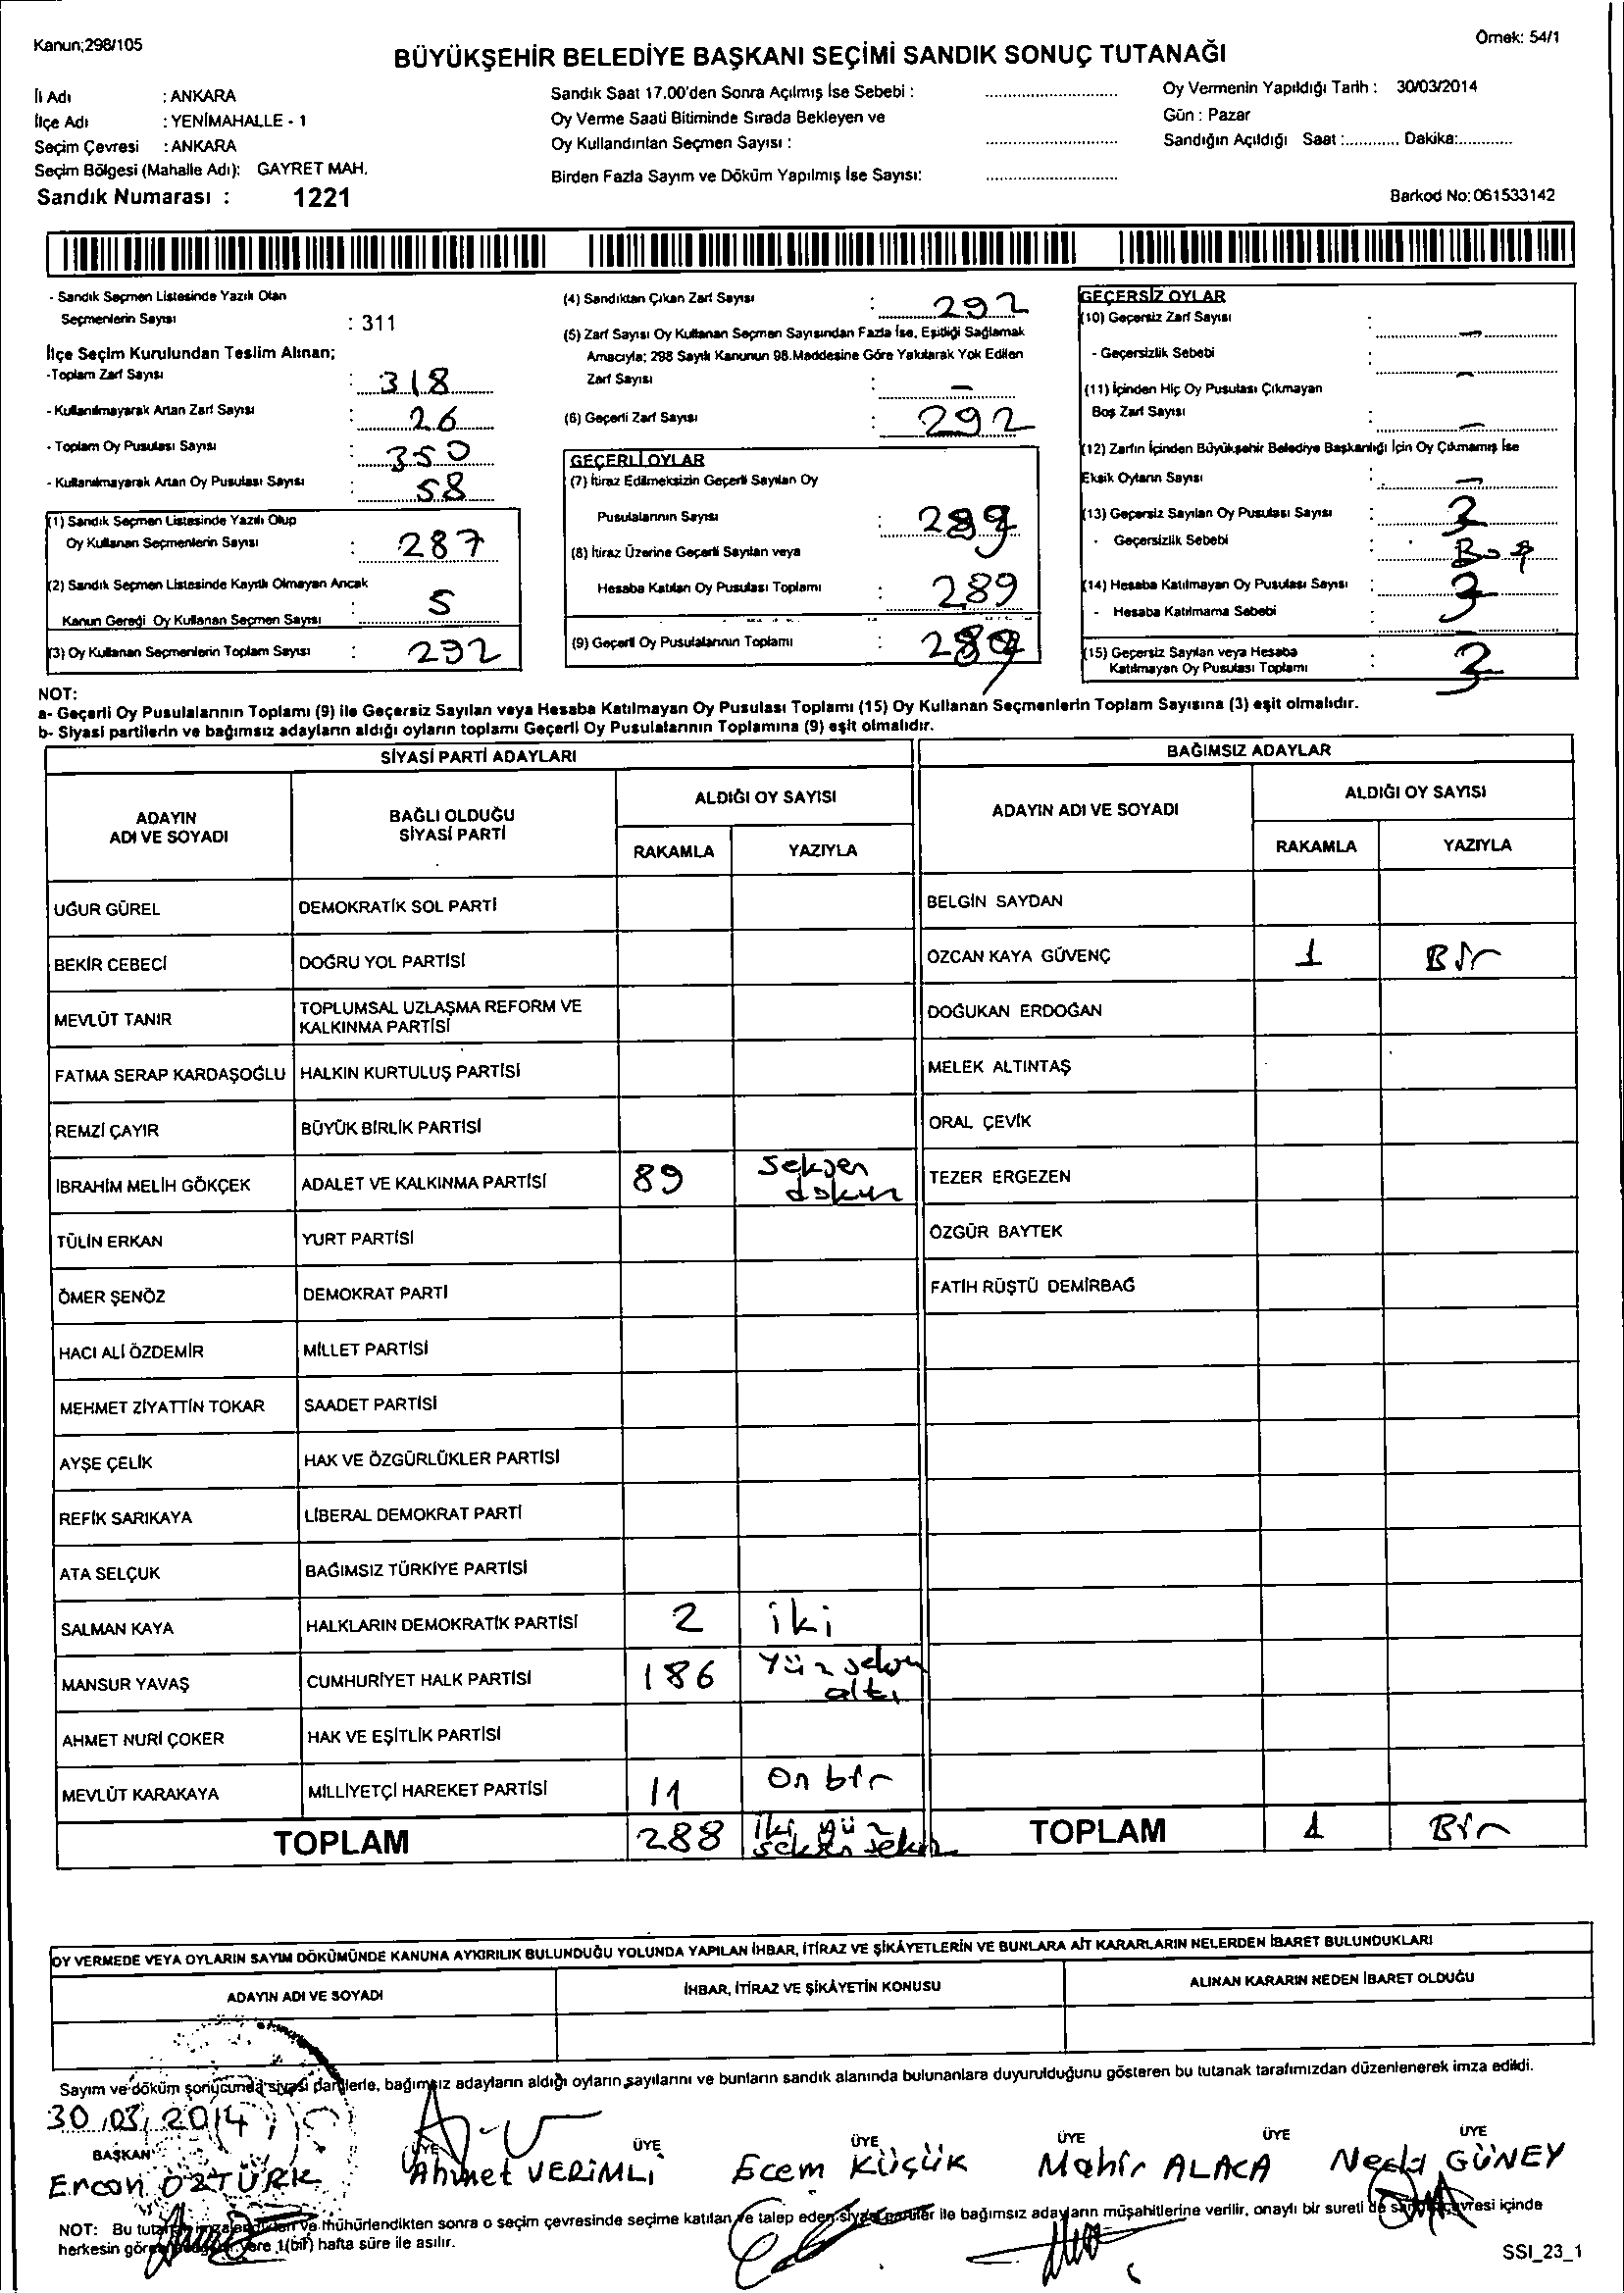 Kanun;298/105
Örnek: 54/1
BÜYÜKŞEHİR BELEDİYE BAŞKANI SEÇİMİ SANDIK SONUÇ TUTANAĞI
İl Adı : ANKARA
İlçe Adı : YENİMAHALLE - 1
Seçim Çevresi : ANKARA
Seçim Bölgesi (Mahalle Adı): GAYRET MAH.
Sandık Numarası : 1221
Sandık Saat 17.00'den Sonra Açılmış İse Sebebi :
Oy Verme Saati Bitiminde Sırada Bekleyen ve
Oy Kullandırılan Seçmen Sayısı :
Birden Fazla Sayım ve Döküm Yapılmış İse Sayısı:
Oy Vermenin Yapıldığı Tarih : 30/03/2014
Gün : Pazar
Sandığın Açıldığı Saat :............ Dakika:............
Barkod No: 061533142
- Sandık Seçmen Listesinde Yazılı Olan
Seçmenlerin Sayısı : 311
İlçe Seçim Kurulundan Teslim Alınan;
-Toplam Zarf Sayısı : 318
- Kullanılmayarak Artan Zarf Sayısı : 26
- Toplam Oy Pusulası Sayısı : 350
- Kullanılmayarak Artan Oy Pusulası Sayısı : 58
(1) Sandık Seçmen Listesinde Yazılı Olup
Oy Kullanan Seçmenlerin Sayısı : 287
(2) Sandık Seçmen Listesinde Kayıtlı Olmayan Ancak
Kanun Gereği Oy Kullanan Seçmen Sayısı : 5
(3) Oy Kullanan Seçmenlerin Toplam Sayısı : 292
(4) Sandıktan Çıkan Zarf Sayısı : 292
(5) Zarf Sayısı Oy Kullanan Seçmen Sayısından Fazla İse, Eşitliği Sağlamak
Amacıyla; 298 Sayılı Kanunun 98.Maddesine Göre Yakılarak Yok Edilen
Zarf Sayısı : -
(6) Geçerli Zarf Sayısı : 292
GEÇERLİ OYLAR
(7) İtiraz Edilmeksizin Geçerli Sayılan Oy
Pusulalarının Sayısı : 289
(8) İtiraz Üzerine Geçerli Sayılan veya
Hesaba Katılan Oy Pusulası Toplamı : 289
(9) Geçerli Oy Pusulalarının Toplamı : 289
GEÇERSİZ OYLAR
(10) Geçersiz Zarf Sayısı : -
- Geçersizlik Sebebi : -
(11) İçinden Hiç Oy Pusulası Çıkmayan
Boş Zarf Sayısı : -
(12) Zarfın İçinden Büyükşehir Belediye Başkanlığı İçin Oy Çıkmamış İse
Eksik Oyların Sayısı : -
(13) Geçersiz Sayılan Oy Pusulası Sayısı : 3
- Geçersizlik Sebebi : Boş
(14) Hesaba Katılmayan Oy Pusulası Sayısı : 3
- Hesaba Katılmama Sebebi :
(15) Geçersiz Sayılan veya Hesaba
Katılmayan Oy Pusulası Toplamı : 3
NOT:
a- Geçerli Oy Pusulalarının Toplamı (9) ile Geçersiz Sayılan veya Hesaba Katılmayan Oy Pusulası Toplamı (15) Oy Kullanan Seçmenlerin Toplam Sayısına (3) eşit olmalıdır.
b- Siyasi partilerin ve bağımsız adayların aldığı oyların toplamı Geçerli Oy Pusulalarının Toplamına (9) eşit olmalıdır.
SİYASİ PARTİ ADAYLARI
ADAYIN ADI VE SOYADI
BAĞLI OLDUĞU SİYASİ PARTİ
ALDIĞI OY SAYISI
RAKAMLA YAZIYLA
UĞUR GÜREL DEMOKRATİK SOL PARTİ
BEKİR CEBECİ DOĞRU YOL PARTİSİ
MEVLÜT TANIR TOPLUMSAL UZLAŞMA REFORM VE KALKINMA PARTİSİ
FATMA SERAP KARDAŞOĞLU HALKIN KURTULUŞ PARTİSİ
REMZİ ÇAYIR BÜYÜK BİRLİK PARTİSİ
İBRAHİM MELİH GÖKÇEK ADALET VE KALKINMA PARTİSİ 89 Seksen dokuz
TÜLİN ERKAN YURT PARTİSİ
ÖMER ŞENÖZ DEMOKRAT PARTİ
HACI ALİ ÖZDEMİR MİLLET PARTİSİ
MEHMET ZİYATTİN TOKAR SAADET PARTİSİ
AYŞE ÇELİK HAK VE ÖZGÜRLÜKLER PARTİSİ
REFİK SARIKAYA LİBERAL DEMOKRAT PARTİ
ATA SELÇUK BAĞIMSIZ TÜRKİYE PARTİSİ
SALMAN KAYA HALKLARIN DEMOKRATİK PARTİSİ 2 iki
MANSUR YAVAŞ CUMHURİYET HALK PARTİSİ 186 Yüz seksen altı
AHMET NURİ ÇOKER HAK VE EŞİTLİK PARTİSİ
MEVLÜT KARAKAYA MİLLİYETÇİ HAREKET PARTİSİ 11 On bir
TOPLAM 288 İki yüz seksen sekiz
BAĞIMSIZ ADAYLAR
ADAYIN ADI VE SOYADI
ALDIĞI OY SAYISI
RAKAMLA YAZIYLA
BELGİN SAYDAN
ÖZCAN KAYA GÜVENÇ 1 Bir
DOĞUKAN ERDOĞAN
MELEK ALTINTAŞ
ORAL ÇEVİK
TEZER ERGEZEN
ÖZGÜR BAYTEK
FATİH RÜŞTÜ DEMİRBAĞ
TOPLAM 1 Bir
OY VERMEDE VEYA OYLARIN SAYIM DÖKÜMÜNDE KANUNA AYKIRILIK BULUNDUĞU YOLUNDA YAPILAN İHBAR, İTİRAZ VE ŞİKÂYETLERİN VE BUNLARA AİT KARARLARIN NELERDEN İBARET BULUNDUKLARI
ADAYIN ADI VE SOYADI
İHBAR, İTİRAZ VE ŞİKÂYETİN KONUSU
ALINAN KARARIN NEDEN İBARET OLDUĞU
Sayım ve döküm sonucunda siyasi partilerle, bağımsız adayların aldığı oyların sayılarını ve bunların sandık alanında bulunanlara duyurulduğunu gösteren bu tutanak tarafımızdan düzenlenerek imza edildi.
30/03/2014
BAŞKAN ÜYE ÜYE ÜYE ÜYE ÜYE ÜYE
Ercan ÖZTÜRK Ahmet VERİMLİ Ecem KÜÇÜK Mahir ALACA Necla GÜNEY
NOT: Bu tutanak imzalandıktan ve mühürlendikten sonra o seçim çevresinde seçime katılan ve talep eden siyasi partiler ile bağımsız adayların müşahitlerine verilir, onaylı bir sureti de sandık çevresi içinde
herkesin yere 1(bir) hafta süre ile asılır.
SSI_23_1